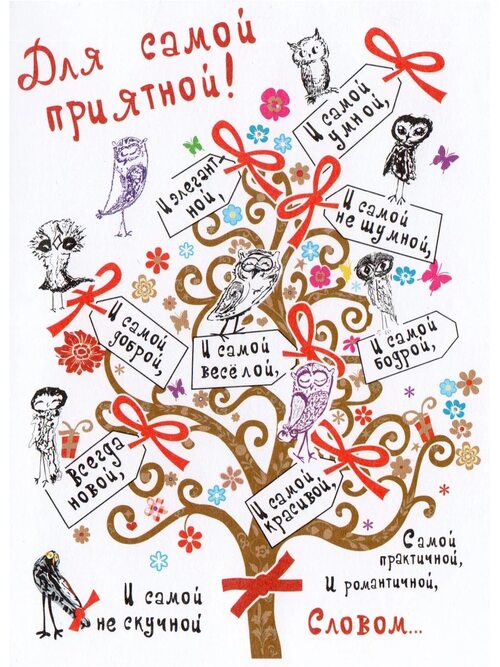 Для самой
приятной!
И самой
умной,
И элегант-
ной,
И самой
не шумной,
И самой
доброй,
И самой
весёлой,
И самой
бодрой,
Всегда
новой,
И самой
красивой,
И самой
не скучной
Самой
практичной,
И романтичной,
Словом...